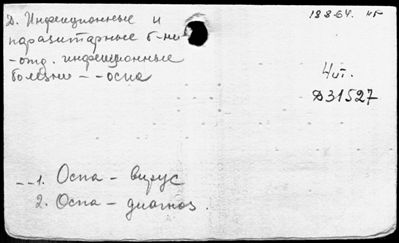 Д. Инфекционные и
паразитарные б-ни
-отд. инфекционные
болезни - - оспа
19864.
4 ит.
Д31527
--1. Оспа - вирус
2. Оспа - диагноз.